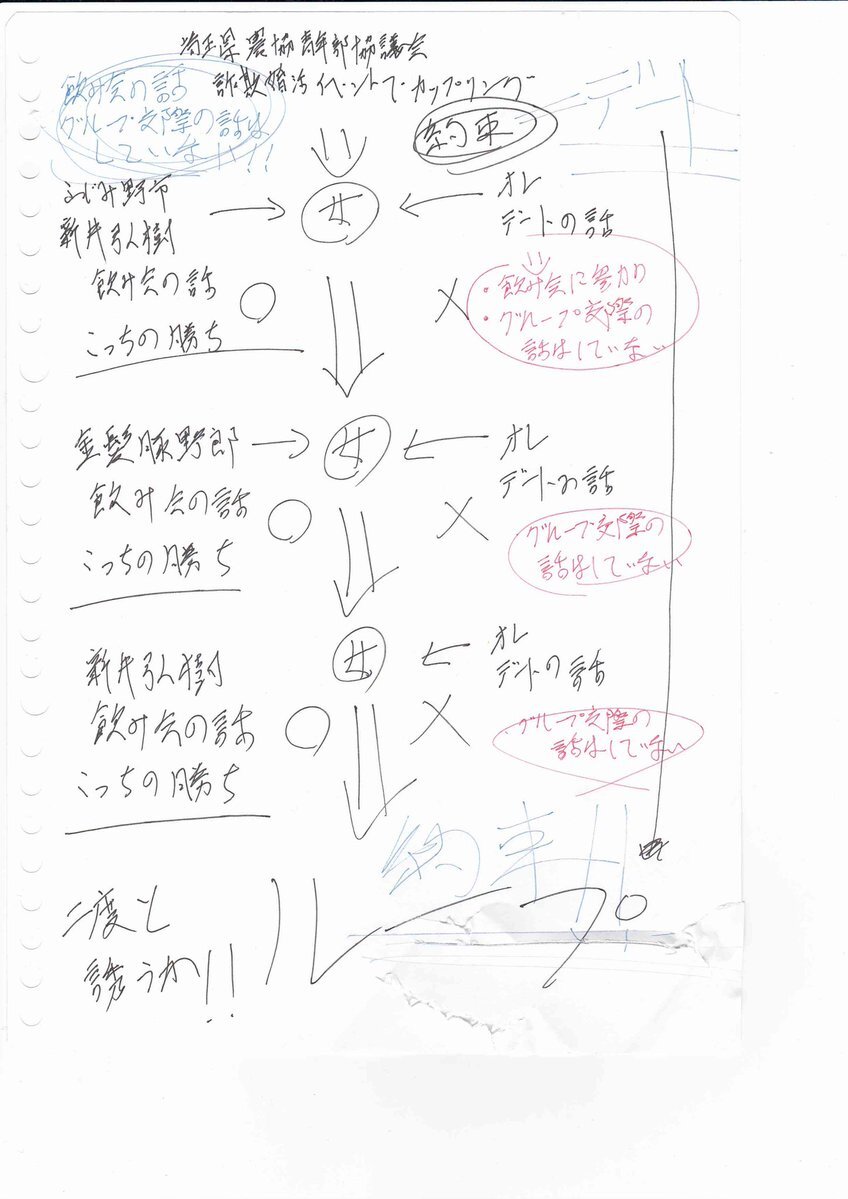 埼玉県農協青年部協議会
詐欺婚活イベントでカップリング
飲み会の話
グループ交際の話は
していない!!
約束
デート
ふじみ野市
新井弘樹
飲み会の話
こっちの勝ち
女
オレ
デートの話
・飲み会に参加
・グループ交際の
話はしていない
金髪豚野郎
飲み会の話
こっちの勝ち
女
オレ
デートの話
グループ交際の
話はしていない
新井弘樹
飲み会の話
こっちの勝ち
女
オレ
デートの話
グループ交際の
話はしていない
約束!!
二度と
誘うか!!
ループ